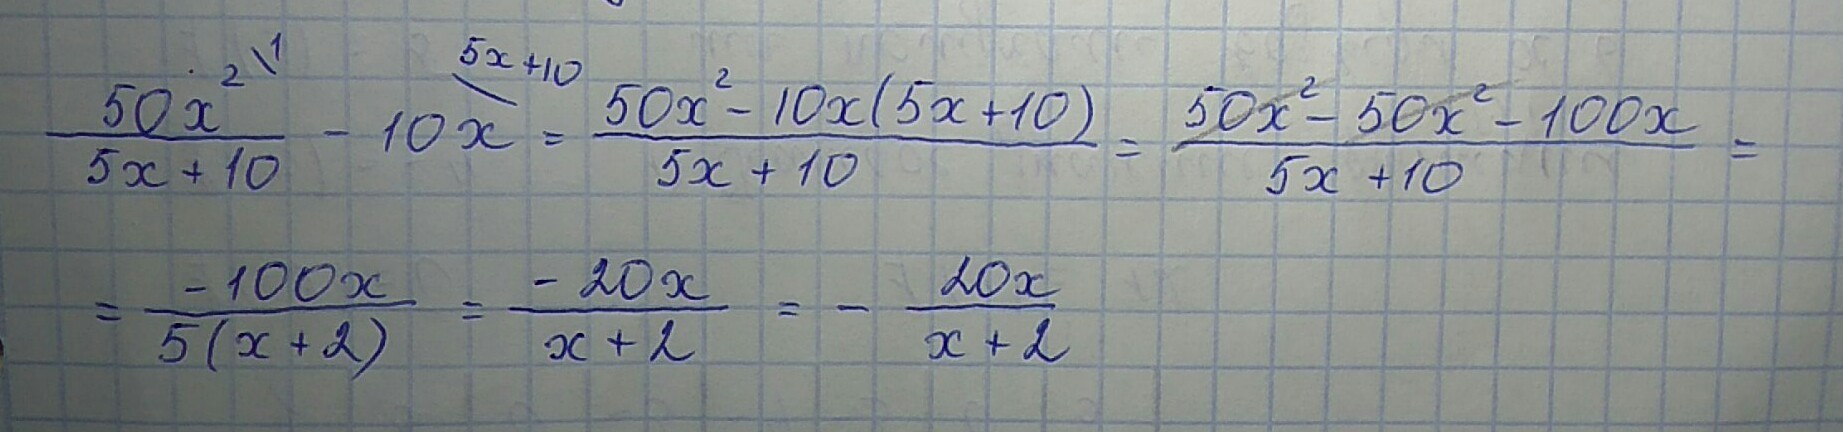 50x²\1 / 5x+10 - 10x\5x+10 = 50x² - 10x(5x+10) / 5x+10 = 50x² - 50x² - 100x / 5x+10 =
= -100x / 5(x+2) = -20x / x+2 = - 20x / x+2